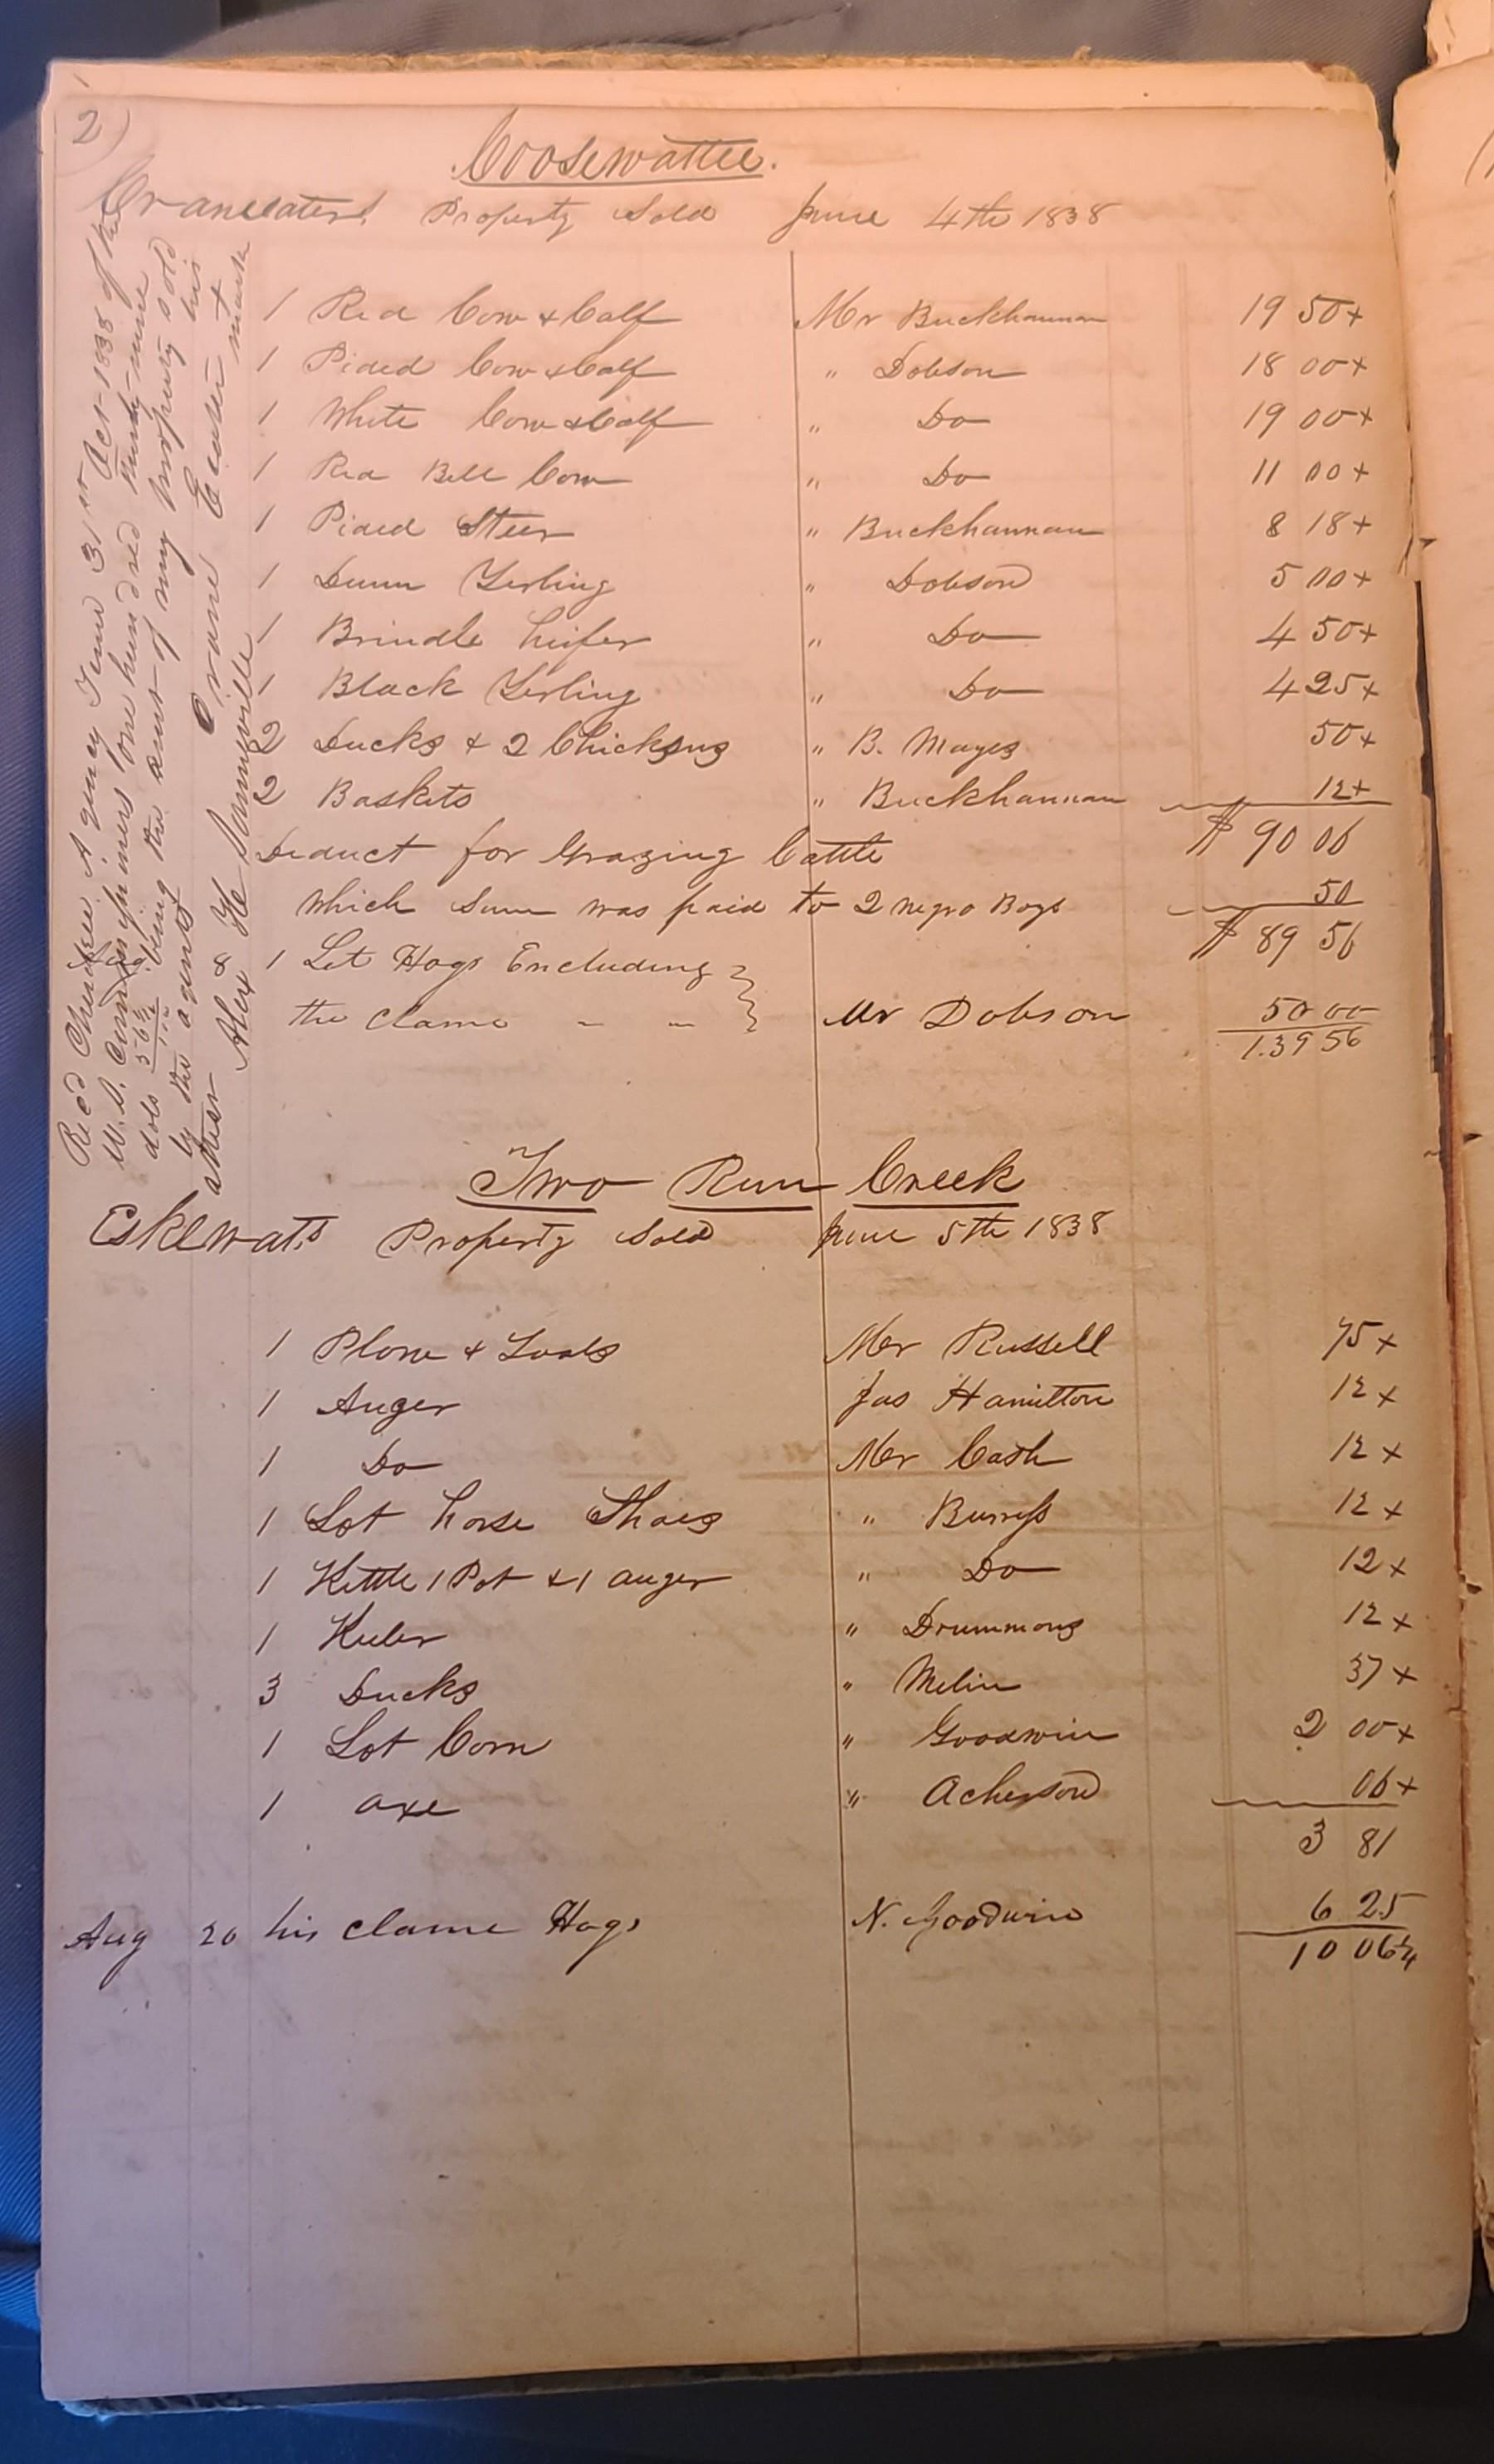 2)
Coosewattee.
Craneeaters Property Sold June 4th 1838
1 Red Cow & Calf Mr Buckhannan 19 50+
1 Pided Cow & Calf " Dobson 18 00+
1 White Cow & Calf " Do 19 00+
1 Red Bell Cow " Do 11 00+
1 Pided Steer " Buckhannan 8 18+
1 Dunn Yerling " Dobson 5 00+
1 Brindle heifer " Do 4 50+
1 Black Yerling " Do 4 25+
2 Ducks & 2 Chickens " B. Mayes 50+
2 Baskets " Buckhannan 12+
$ 90 06
Deduct for Grazing Cattle
which sum was paid to 2 negro Boys 50
$ 89 56
Aug 8 1 Lot Hogs Encluding
the clame - - Mr Dobson 50 00
139 56
Recd Cherokee Agency Tenne 31st Oct 1838 of the
U.S. Commissioners one hundred thirty-nine
dols 56 1/2 being the amt of my property sold
by the agents Crane his + mark Eeater
attest Alex H Danniville
Two Run Creek
Eskewats Property Sold June 5th 1838
1 Plow & Tools Mr Russell 75+
1 Auger Jas Hamilton 12+
1 Do Mr Cash 12+
1 Lot horse Shoes " Burress 12+
1 Kettle 1 Pot & 1 auger " Do 12+
1 Keeler " Drummons 12+
3 Ducks " Melin 37+
1 Lot Corn " Goodwin 2 00+
1 axe " Acherson 06+
3 81
Aug 20 his clame Hogs N. Goodwin 6 25
10 06 1/4